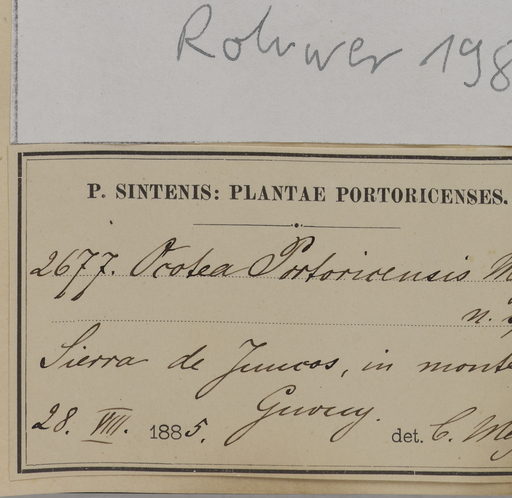 Rohwer 198
P. SINTENIS: PLANTAE PORTORICENSES.
2677. Ocotea Portoricensis M
n.
Sierra de Juncos, in monte
28. VIII. 1885.
det. C. Me